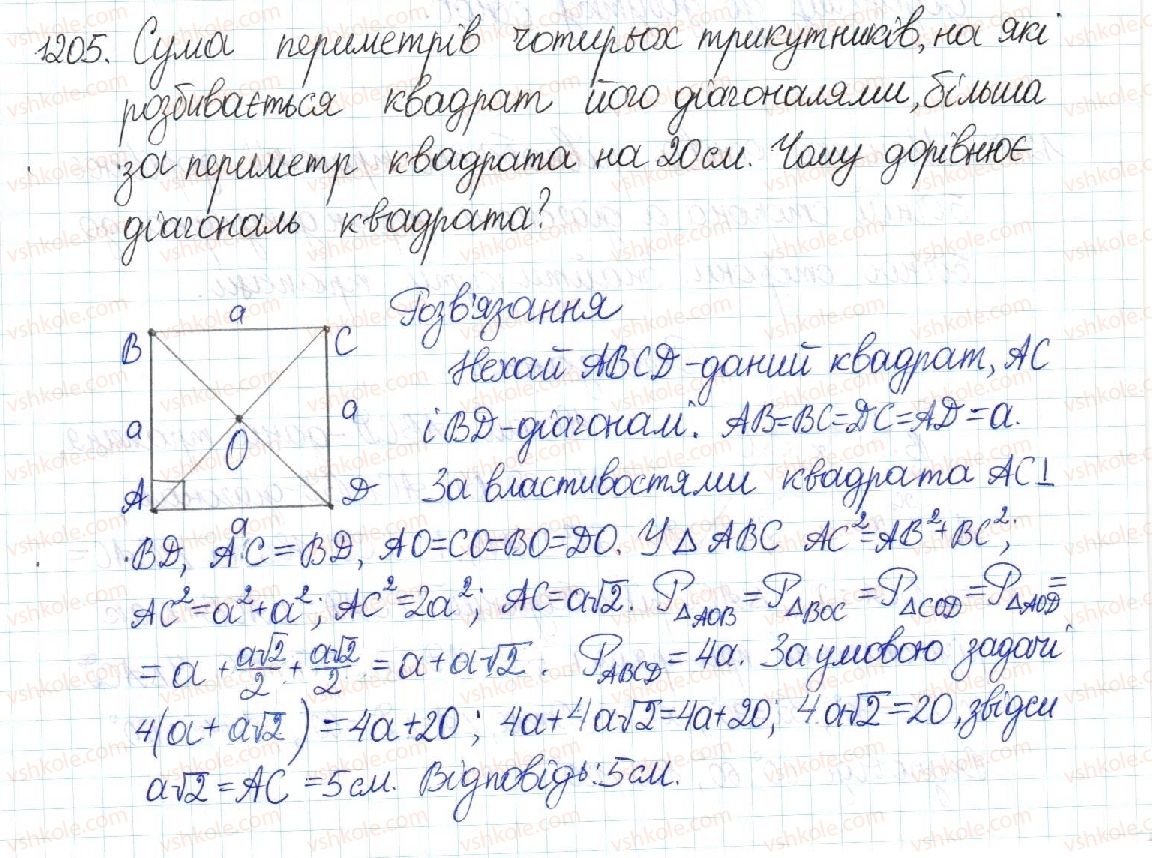 1205. Сума периметрів чотирьох трикутників, на які
розбивається квадрат його діагоналями, більша
за периметр квадрата на 20 см. Чому дорівнює
діагональ квадрата?
a
B
C
a
a
O
A
D
a
Розв'язання
Нехай ABCD - даний квадрат, AC
і BD - діагоналі. AB=BC=DC=AD=a.
За властивостями квадрата AC⊥
BD, AC=BD, AO=CO=BO=DO. У △ABC AC²=AB²+BC²;
AC²=a²+a²; AC²=2a²; AC=a√2. P△AOB=P△BOC=P△COD=P△AOD=
=a+a√2/2+a√2/2=a+a√2. PABCD=4a. За умовою задачі
4(a+a√2)=4a+20; 4a+4a√2=4a+20; 4a√2=20, звідси
a√2=AC=5 см. Відповідь: 5 см.
vshkole.com